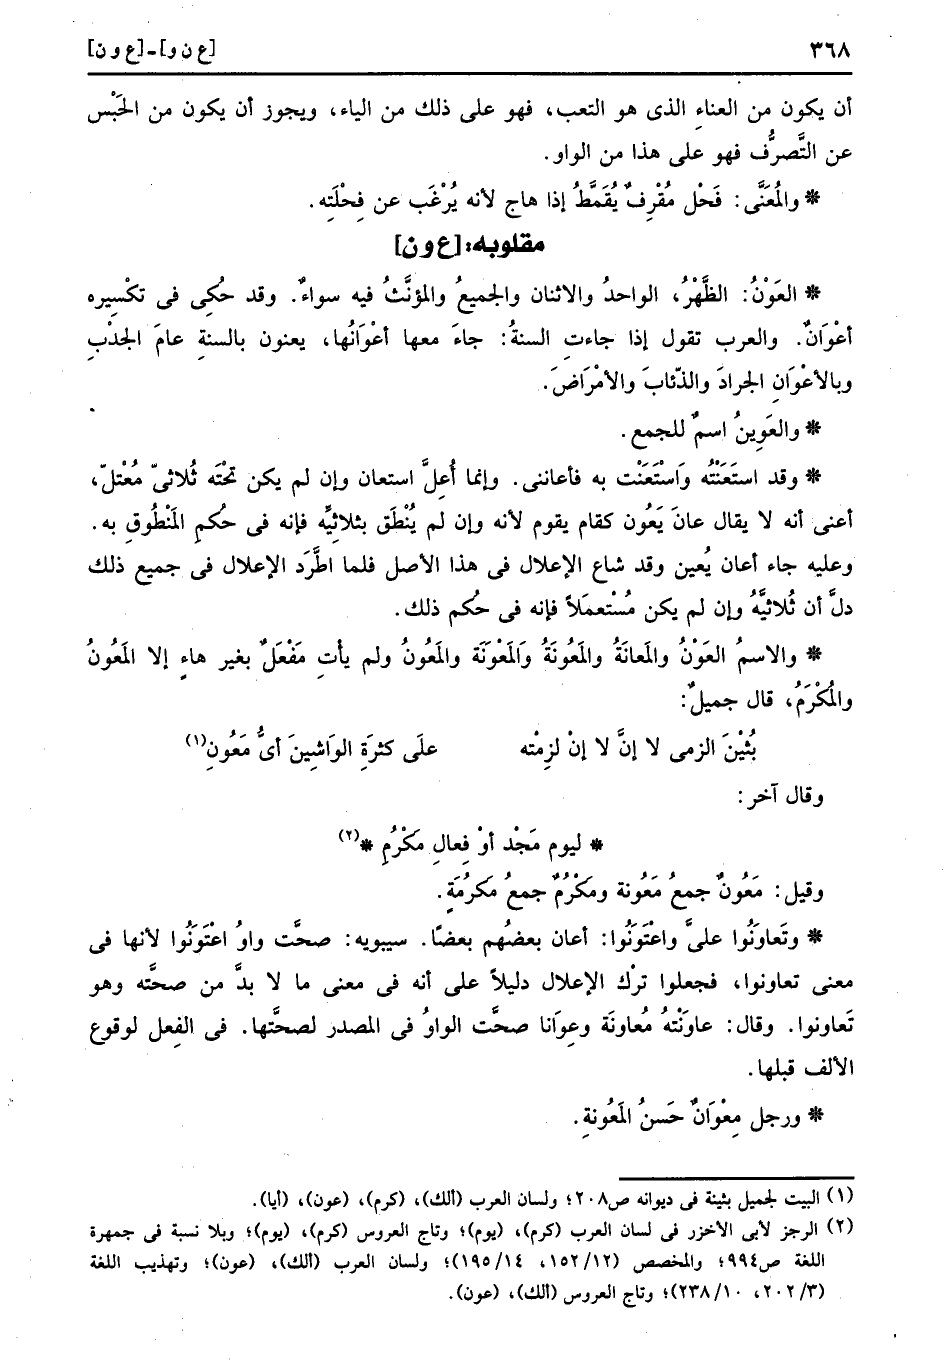 ٣٦٨ [ع ن و]-[ع و ن]
أن يكون من العناءِ الذى هو التعب، فهو على ذلك من الياء، ويجوز أن يكون من الحَبْسِ
عن التَّصرُّف فهو على هذا من الواو.
* والمُعَنَّى: فَحْل مُقْرِفٌ يُقَمَّطُ إذا هاج لأنه يُرْغَب عن فِحْلَتِه.
مقلوبه: [ع و ن]
* العَوْنُ: الظَّهْرُ، الواحدُ والاثنان والجميعُ والمؤنَّثُ فيه سواءٌ. وقد حُكِى فى تكْسِيره
أعْوَانٌ. والعرب تقول إذا جاءتِ السنةُ: جاءَ معها أعْوَانُها، يعنون بالسنةِ عامَ الجَدْبِ
وبالأعْوَانِ الجرادَ والذّئابَ والأمْرَاضَ.
* والعَوِينُ اسمٌ للجمع.
* وقد استَعَنْتُه وَاسْتَعَنْت به فأعاننى. وإنما أُعِلَّ استعان وإن لم يكن تحْتَه ثُلاثىّ مُعْتلّ،
أعنى أنه لا يقال عانَ يَعُون كقام يقوم لأنه وإن لم يُنْطَق بثلاثيِّه فإنه فى حُكمِ المَنْطُوقِ به.
وعليه جاء أعان يُعين وقد شاع الإعلال فى هذا الأصل فلما اطَّرَد الإعلال فى جميع ذلك
دلَّ أن ثُلاثيَّهُ وإن لم يكن مُسْتعمَلاً فإنه فى حُكم ذلك.
* والاسمُ العَوْنُ والمَعانَةُ والمَعُونَةُ وَالمَعْوُنَة والمَعُون ولم يأتِ مَفْعَلٌ بغير هاءٍ إلا المَعُونُ
والمُكْرَمُ، قال جميلٌ:
بُثَيْنَ الزمى لا إنَّ لا إنْ لزِمْتِه علَى كثرَةِ الوَاشِينَ أىُّ مَعُونِ(١)
وقال آخر:
* ليومِ مَجْد أوْ فِعالِ مَكْرُمِ *(٢)
وقيل: مَعُونٌ جمعُ مَعُونة ومَكْرُمٌ جمعُ مَكرُمَةٍ.
* وتَعاوَنُوا علىَّ واعتَوَنُوا: أعان بعضُهم بعضًا. سيبويه: صحَّت واوُ اعْتَوَنُوا لأنها فى
معنى تعاونوا، فجعلوا ترْك الإعلال دليلاً على أنه فى معنى ما لا بدَّ من صحَّته وهو
تَعاونوا. وقال: عاوَنْتهُ مُعاونَة وعِوَانا صحَّت الواوُ فى المصدر لصحَّتها. فى الفِعل لوقوع
الألف قبلها.
* ورجل مِعْوَانٌ حَسنُ المَعُونةِ.
(١) البيت لجميل بثينة فى ديوانه ص٢٠٨؛ ولسان العرب (ألك)، (كرم)، (عون)، (أيا).
(٢) الرجز لأبى الأخزر فى لسان العرب (كرم)، (يوم)؛ وتاج العروس (كرم)، (يوم)؛ وبلا نسبة فى جمهرة
اللغة ص٩٩٤؛ والمخصص (١٥٢/١٢، ١٩٥/١٤)؛ ولسان العرب (ألك)، (عون)؛ وتهذيب اللغة
(٢٠٢/٣، ٢٣٨/١٠)؛ وتاج العروس (ألك)، (عون).